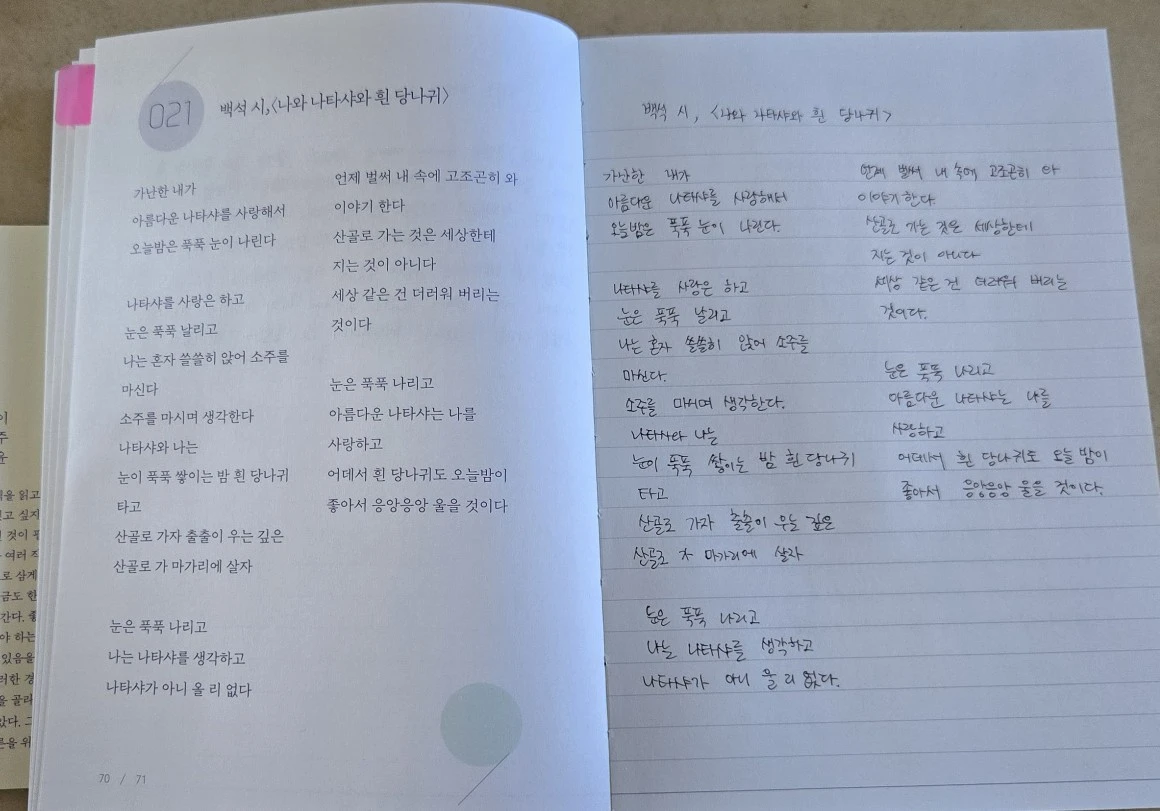 021
백석 시, <나와 나타샤와 흰 당나귀>
가난한 내가
아름다운 나타샤를 사랑해서
오늘밤은 푹푹 눈이 나린다
나타샤를 사랑은 하고
눈은 푹푹 날리고
나는 혼자 쓸쓸히 앉어 소주를
마신다
소주를 마시며 생각한다
나타샤와 나는
눈이 푹푹 쌓이는 밤 흰 당나귀
타고
산골로 가자 출출이 우는 깊은
산골로 가 마가리에 살자
눈은 푹푹 나리고
나는 나타샤를 생각하고
나타샤가 아니 올 리 없다
언제 벌써 내 속에 고조곤히 와
이야기 한다
산골로 가는 것은 세상한테
지는 것이 아니다
세상 같은 건 더러워 버리는
것이다
눈은 푹푹 나리고
아름다운 나타샤는 나를
사랑하고
어데서 흰 당나귀도 오늘밤이
좋아서 응앙응앙 울을 것이다
70 / 71
백석 시, <나와 나타샤와 흰 당나귀>
가난한 내가
아름다운 나타샤를 사랑해서
오늘밤은 푹푹 눈이 나린다.
나타샤를 사랑은 하고
눈은 푹푹 날리고
나는 혼자 쓸쓸히 앉어 소주를
마신다.
소주를 마시며 생각한다.
나타샤와 나는
눈이 푹푹 쌓이는 밤 흰 당나귀
타고
산골로 가자 출출이 우는 깊은
산골로 가 마가리에 살자
눈은 푹푹 나리고
나는 나타샤를 생각하고
나타샤가 아니 올 리 없다.
언제 벌써 내 속에 고조곤히 와
이야기 한다
산골로 가는 것은 세상한테
지는 것이 아니다
세상 같은 건 더러워 버리는
것이다.
눈은 푹푹 나리고
아름다운 나타샤는 나를
사랑하고
어데서 흰 당나귀도 오늘 밤이
좋아서 응앙응앙 울을 것이다.